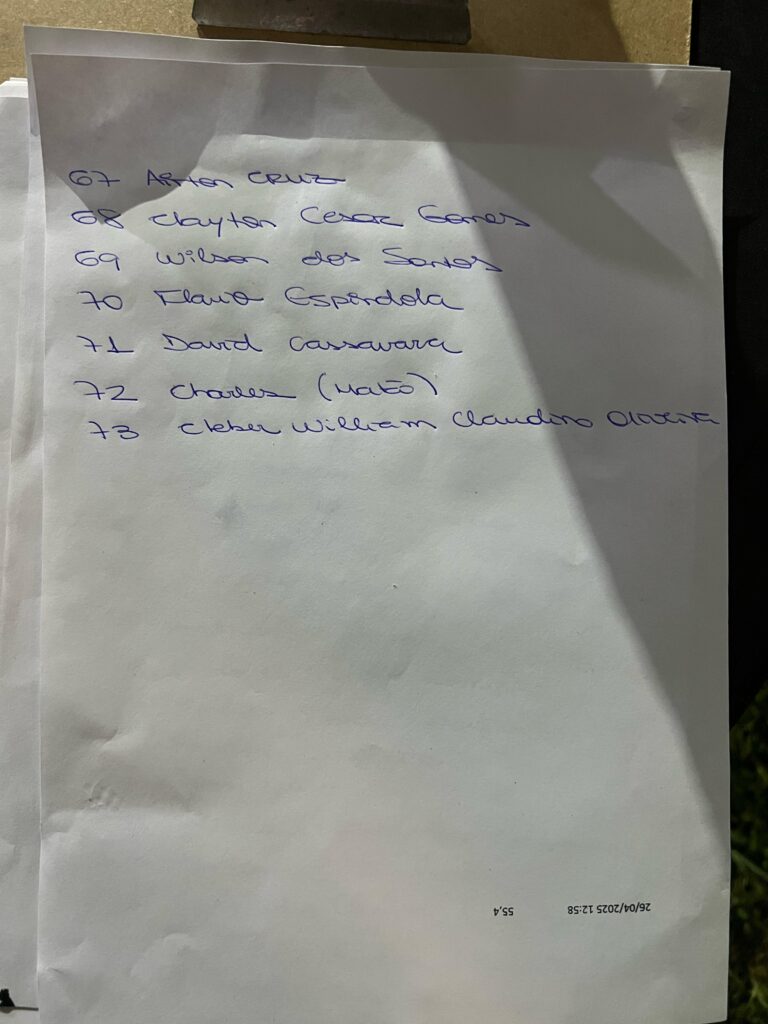 67 Airton CRUZ
68 Clayton Cesar Gomes
69 Wilson dos Santos
70 Flavio Espindola
71 David Cassavara
72 Charles (Mato)
73 Cleber William Claudino Oliveira
26/04/2025 12:58 55,4